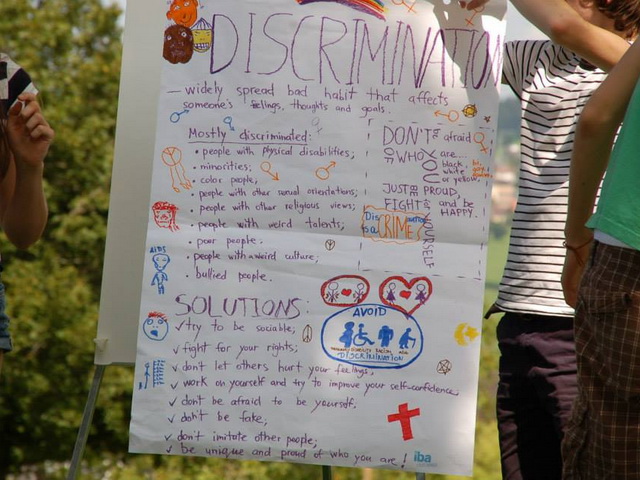 DISCRIMINATION
— widely spread bad habit that affects
someone's feelings, thoughts and goals.
Mostly discriminated:
• people with physical disabilities;
• minorities;
• color people;
• people with other sexual orientations;
• people with other religious views;
• people with weird talents;
• poor people.
• people with a weird culture;
• bullied people.
AIDS
DON'T BE afraid
OF WHO YOU are...
black,
white
or yellow,
JUST BE PROUD,
FIGHT FOR YOURSELF and be
HAPPY.
Discrimination
is a CRIME
SOLUTIONS:
✓ try to be sociable;
✓ fight for your rights;
✓ don't let others hurt your feelings;
✓ work on yourself and try to improve your self-confidence;
✓ don't be afraid to be yourself.
✓ don't be fake;
✓ don't imitate other people;
✓ be unique and proud of who you are!
AVOID
DISCRIMINATION
iba